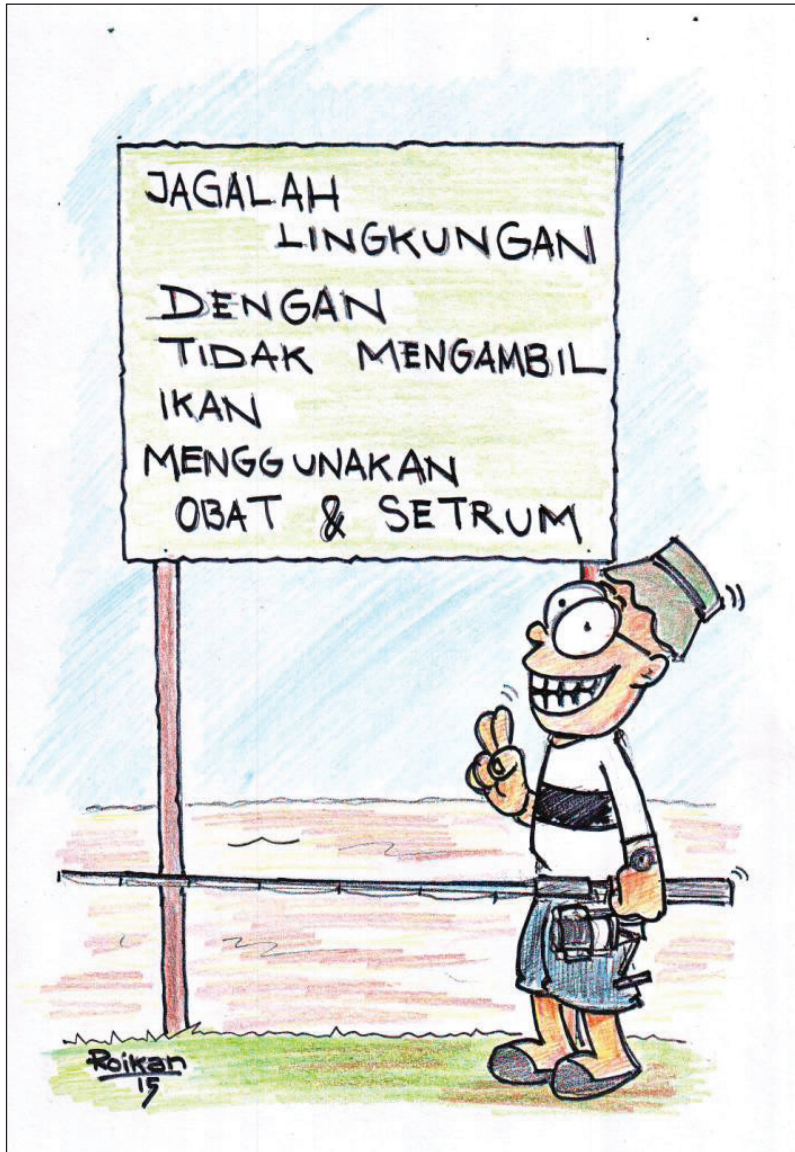 JAGALAH
LINGKUNGAN
DENGAN
TIDAK MENGAMBIL
IKAN
MENGGUNAKAN
OBAT & SETRUM
Roikan
15